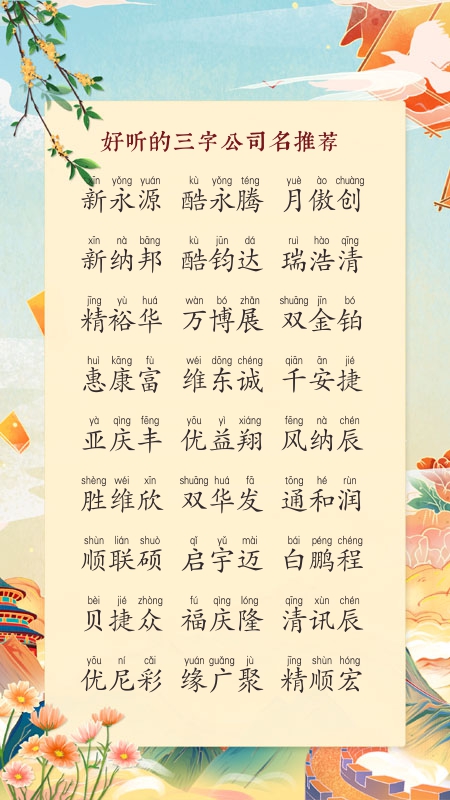 好听的三字公司名推荐
xīn yǒng yuán kù yǒng téng yuè ào chuàng
新永源 酷永腾 月傲创
xīn nà bāng kù jūn dá ruì hào qīng
新纳邦 酷钧达 瑞浩清
jīng yù huá wàn bó zhǎn shuāng jīn bó
精裕华 万博展 双金铂
huì kāng fù wéi dōng chéng qiān ān jié
惠康富 维东诚 千安捷
yà qìng fēng yōu yì xiáng fēng nà chén
亚庆丰 优益翔 风纳辰
shèng wéi xīn shuāng huá fā tōng hé rùn
胜维欣 双华发 通和润
shùn lián shuò qǐ yǔ mài bái péng chéng
顺联硕 启宇迈 白鹏程
bèi jié zhòng fú qìng lóng qīng xùn chén
贝捷众 福庆隆 清讯辰
yōu ní cǎi yuán guǎng jù jīng shùn hóng
优尼彩 缘广聚 精顺宏